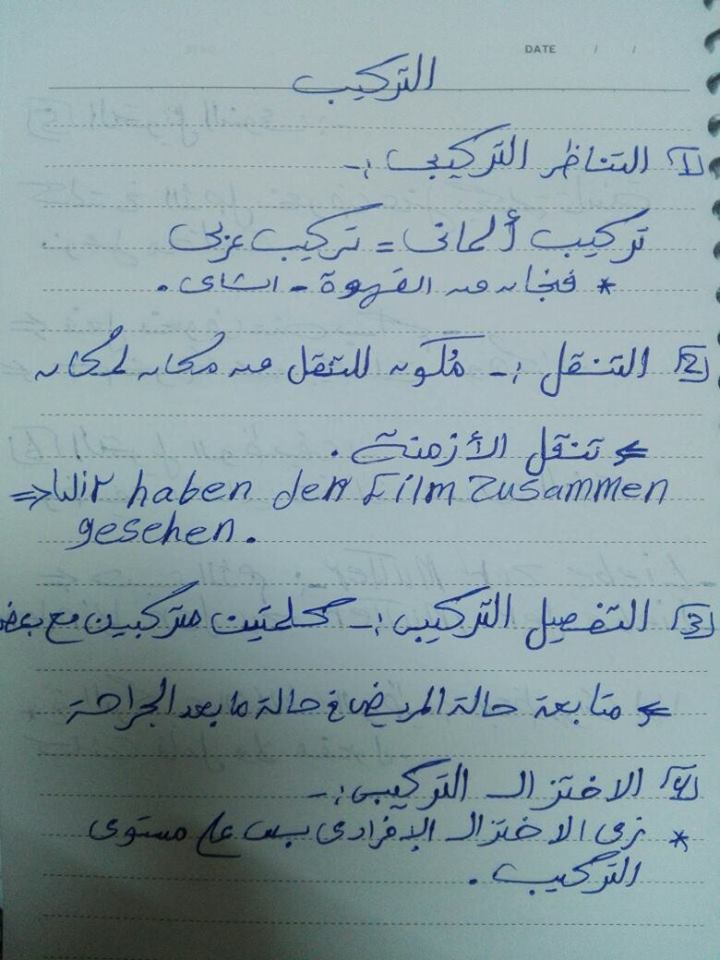 DATE / /
التركيب
1 التناظر التركيبى :-
تركيب ألمانى = تركيب عربى
* فنجان من القهوة - الشاى .
2 التنقل :- مُكون للتنقل من مكان لمكان
⇐ تنقل الأزمنة .
⇒ Wir haben den Film zusammen
gesehen .
3 التفصيل التركيبى :- كلمتين متركبين مع بعض
⇐ متابعة حالة المريض فى حالة ما بعد الجراحة
4 الاختزال التركيبى :-
* زى الاختزال الإفرادى بس على مستوى
التركيب .